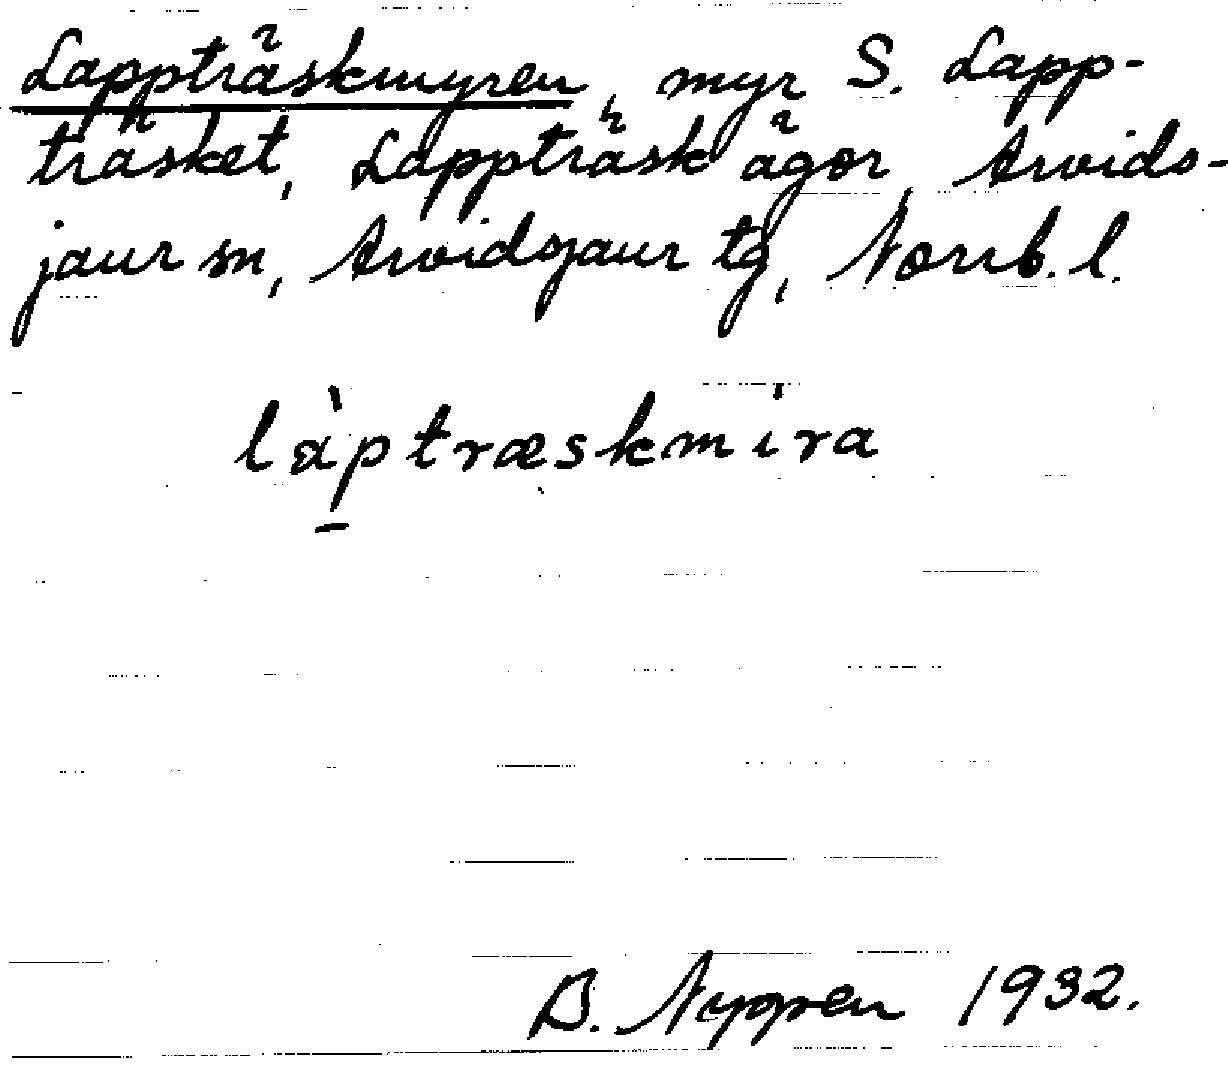 Lappträskmyren, myr S. Lapp-
träsket, Lappträsk ägor, Arvids-
jaur sn, Arvidsjaur tg, Norrb. l.
làp̱træskmi̍ra
B. Nygren 1932.